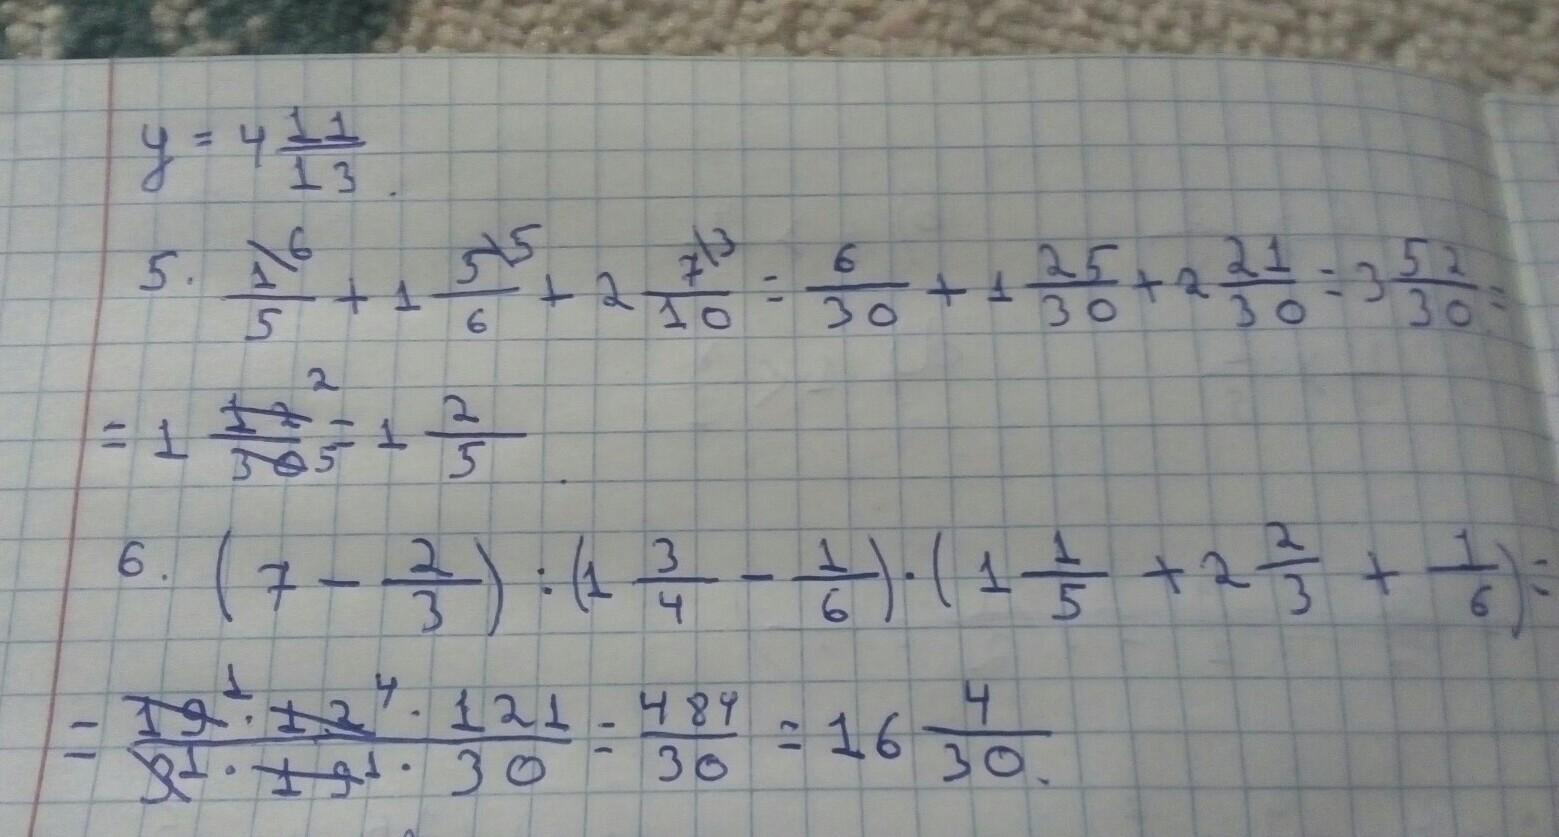 y = 4 11/13.
5. 1\6/5 + 1 5\5/6 + 2 7\3/10 = 6/30 + 1 25/30 + 2 21/30 = 3 52/30 =
= 1 12 2/30 5 = 1 2/5.
6. (7 - 2/3) : (1 3/4 - 1/6) · (1 1/5 + 2 2/3 + 1/6) =
= 19 1 · 12 4 · 121/3 1 · 19 1 · 30 = 484/30 = 16 4/30.